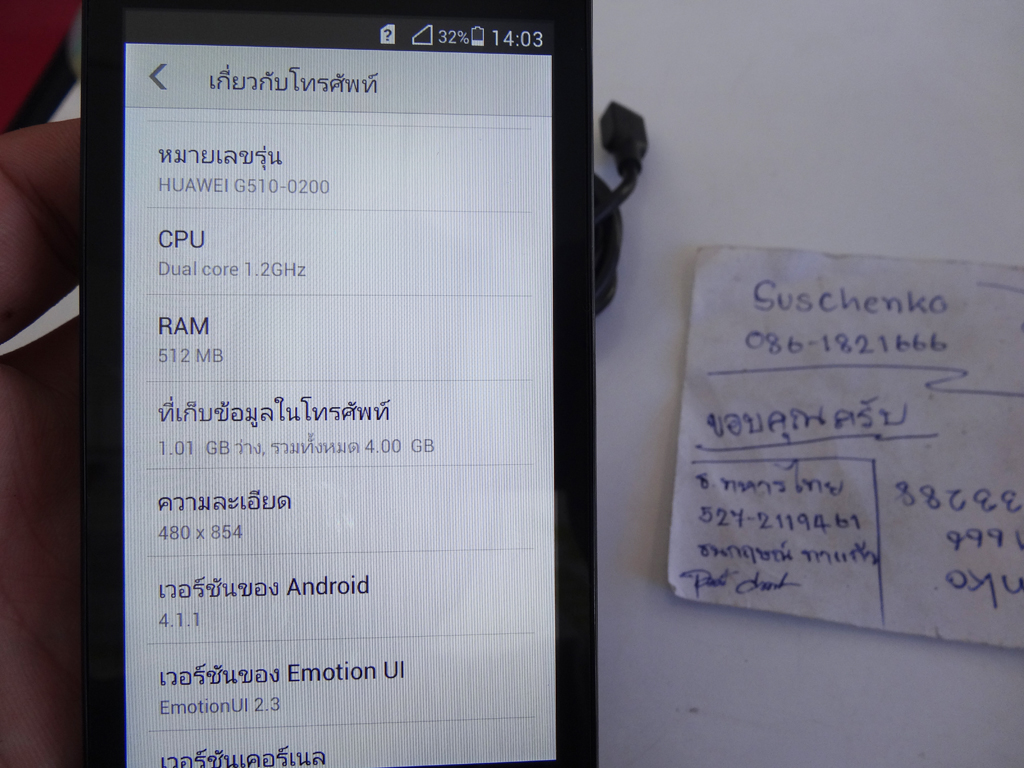 32% 14:03
เกี่ยวกับโทรศัพท์
หมายเลขรุ่น
HUAWEI G510-0200
CPU
Dual core 1.2GHz
RAM
512 MB
ที่เก็บข้อมูลในโทรศัพท์
1.01 GB ว่าง, รวมทั้งหมด 4.00 GB
ความละเอียด
480 x 854
เวอร์ชันของ Android
4.1.1
เวอร์ชันของ Emotion UI
EmotionUI 2.3
เวอร์ชันเคอร์เนล
Suschenko
086-1821666
ขอบคุณครับ
ธ.ทหารไทย
527-2119461
ธนกฤษณ์ ทาแก้ว